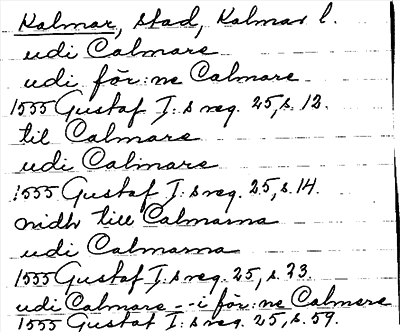 Kalmar, stad, Kalmar l.
udi Calmare
udi för:ne Calmare
1555 Gustaf I:s reg. 25, s. 12.
til Calmare
udi Calmare
1555 Gustaf I:s reg. 25, s. 14.
nidh till Calmarna
udi Calmarna
1555 Gustaf I:s reg. 25, s. 73.
udi Calmare -- i för:ne Calmare
1555 Gustaf I:s reg. 25, s. 59.